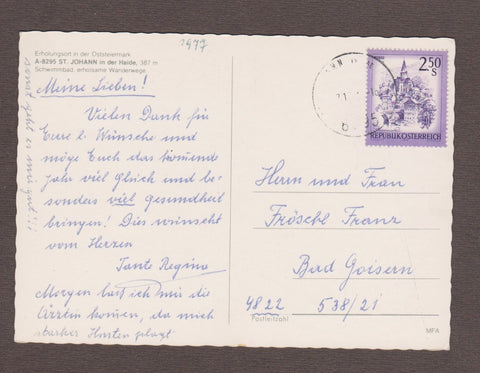 1997
Erholungsort in der Oststeiermark
A-8295 ST. JOHANN in der Haide, 387 m
Schwimmbad, erholsame Wanderwege
Meine Lieben!
Vielen Dank für
Eure l. Wünsche und
möge Euch das komende
Jahr viel Glück und be-
sonders viel Gesundheit
bringen! Dies wünscht
vom Herzen
Tante Regina
Morgen laß ich mir die
Ärztin komen, da mich
starker Husten plagt
sonst geht es mir gut!!!
2.50
S
REPUBLIK ÖSTERREICH
Herrn und Frau
Fröschl Franz
Bad Goisern
4822 538/21
Postleitzahl
MFA